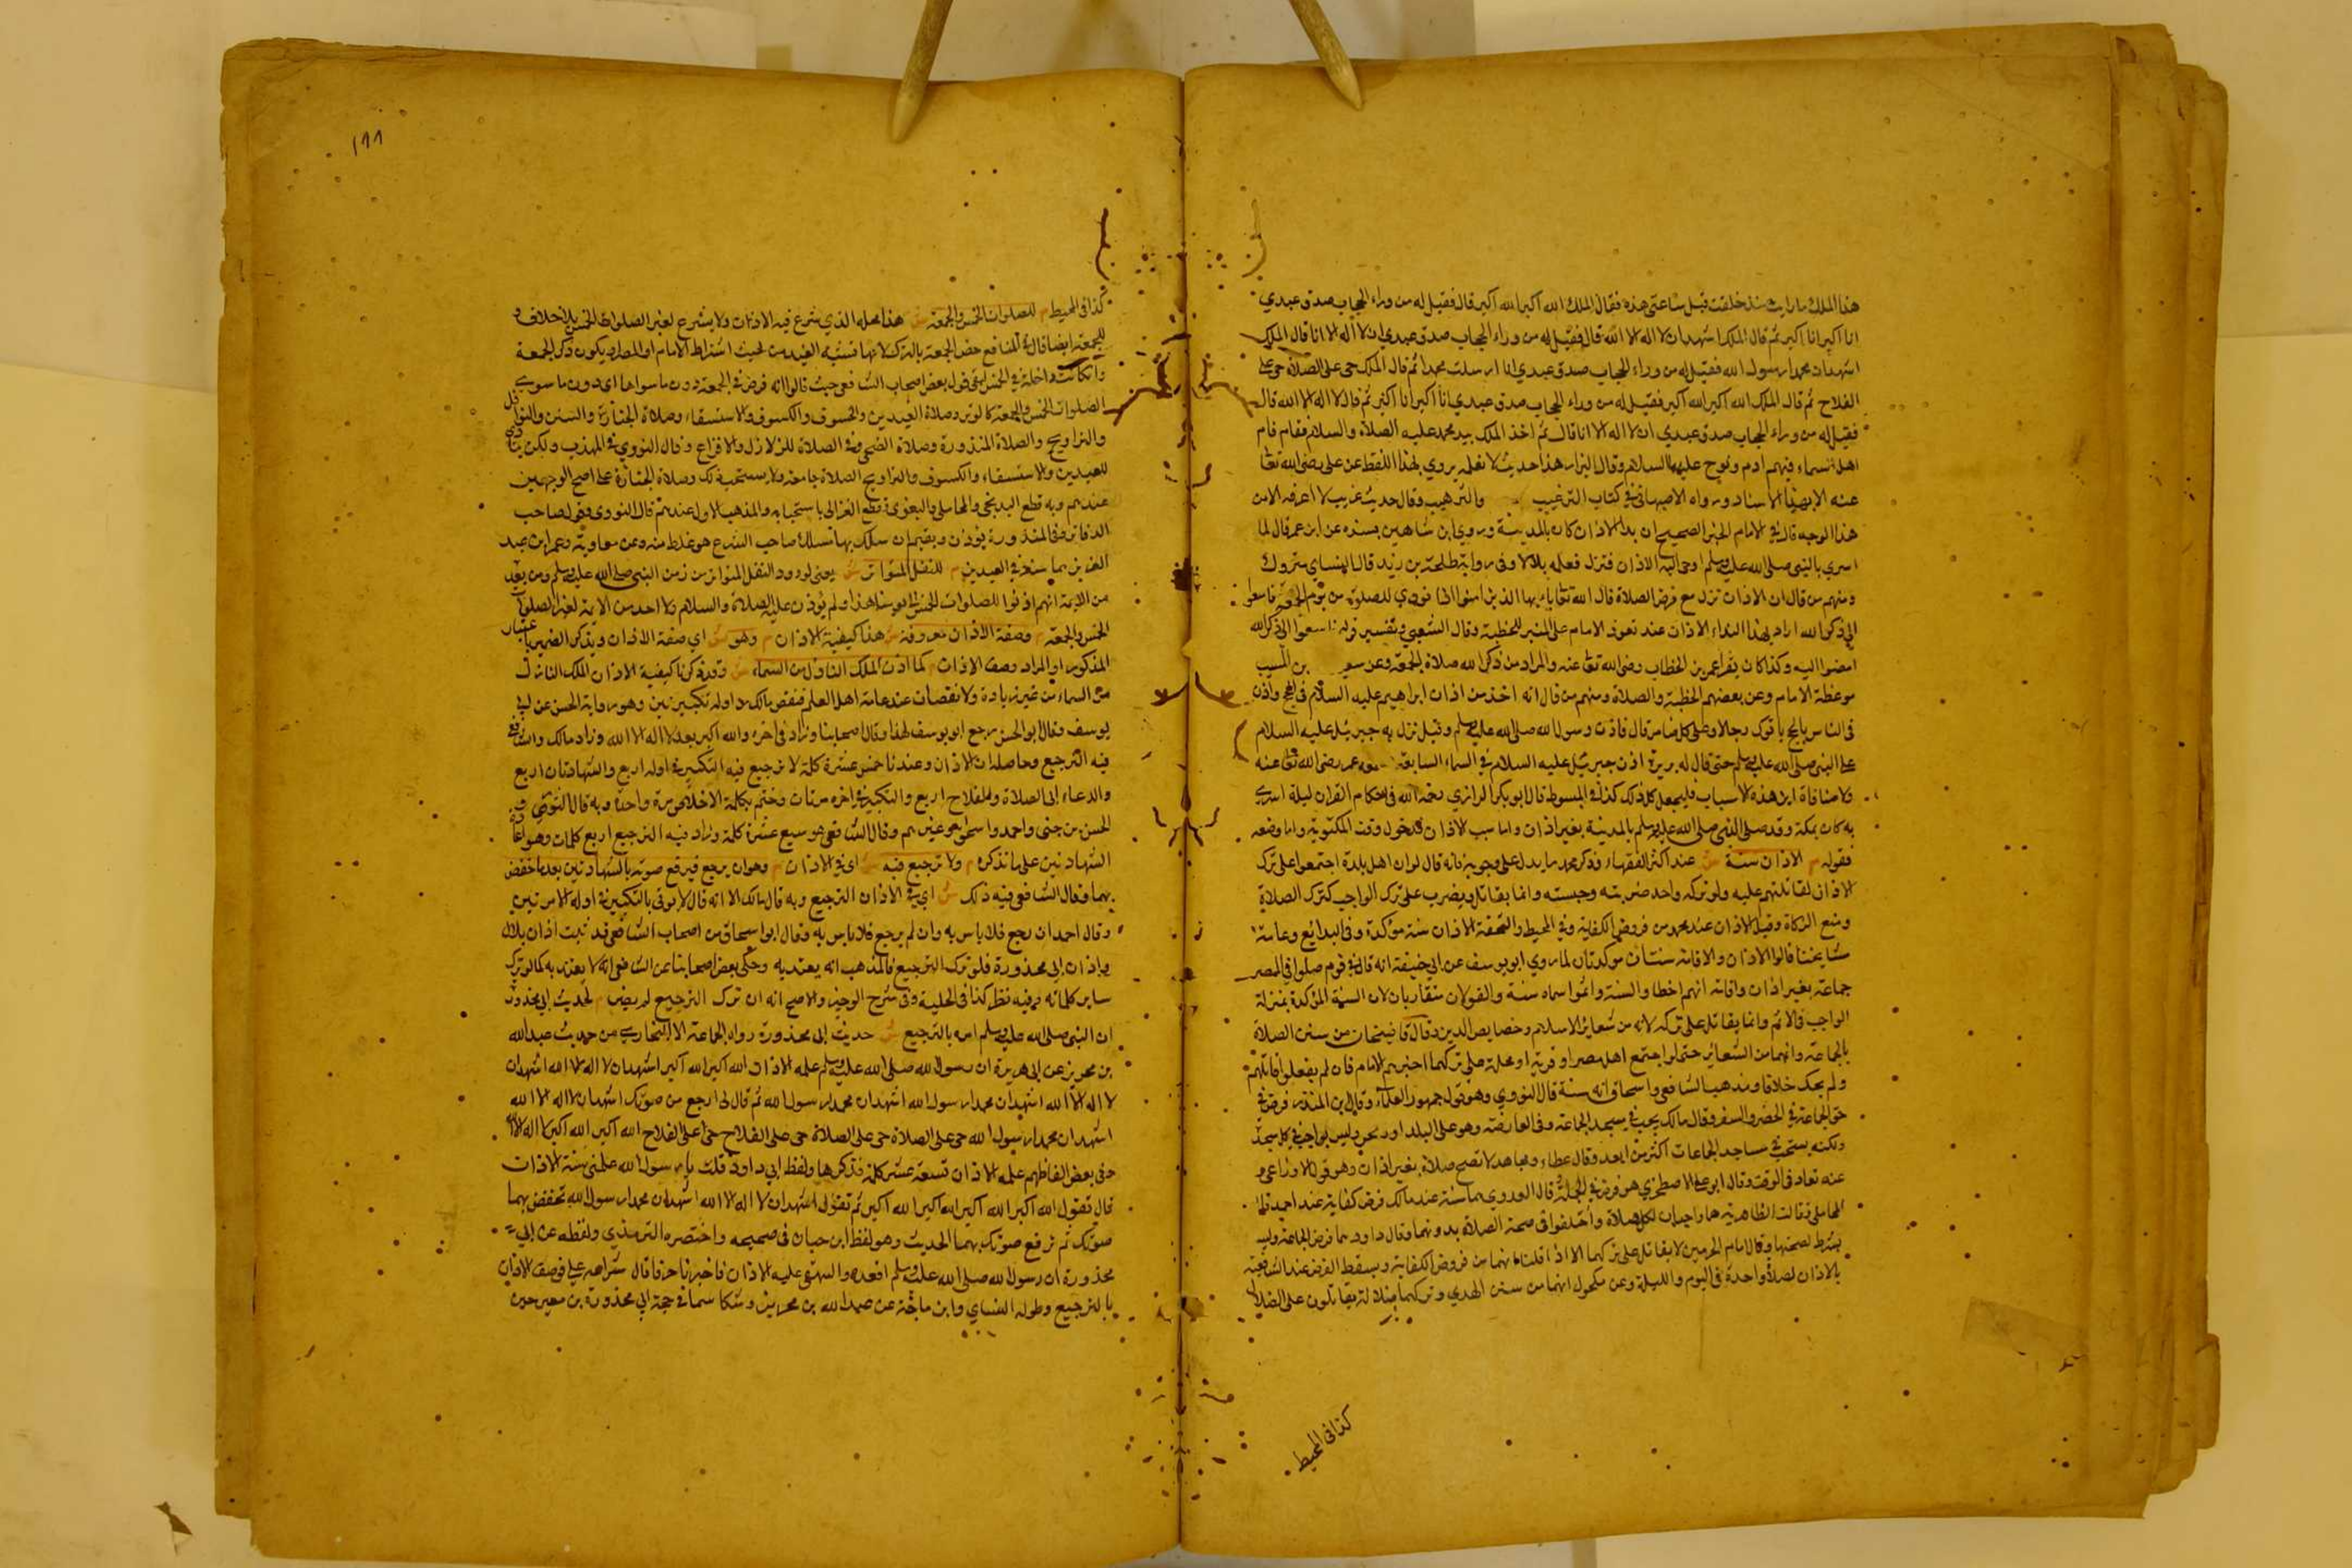 هذا الملك ما رايت منذ خلقت قبل ساعتى هذه فقال الملك الله اكبر الله اكبر قال فقيل له من وراء الحجاب صدق عبدي
انا اكبر انا اكبر ثم قال الملك اشهد ان لا اله الا الله قال فقيل له من وراء الحجاب صدق عبدي ان لا اله الا انا قال الملك
اشهد ان محمدا رسول الله فقيل له من وراء الحجاب صدق عبدي انا ارسلت محمدا ثم قال الملك حى على الصلاة حى على
الفلاح ثم قال الملك الله اكبر الله اكبر فقيل له من وراء الحجاب صدق عبدي انا اكبر انا اكبر ثم قال لا اله الا الله قال
فقيل له من وراء الحجاب صدق عبدي ان لا اله الا انا قال ثم اخذ الملك بيد محمد عليه الصلاة والسلام فقام فام
اهل السماء فيهم ادم ونوح عليهما السلام وقال البزار هذا حديث لا نعلمه يروي بهذا اللفظ عن على رضى الله تعا
عنه الا بهذا الاسناد ورواه الاصبهانى فى كتاب الترغيب والترهيب وقال حديث غريب لا اعرفه الا من
هذا الوجه قال فى الامام الخبر الصحيح ان بدا الاذان كان بالمدينة وروي ابن شاهين بسنده عن ابن عمر قال لما
اسري بالنبى صلى الله عليه وسلم اوحى اليه الاذان فنزل فعلمه بلالا وفى روايته طلحة بن زيد قال النساي متروك
ومنهم من قال ان الاذان نزل مع فرض الصلاة قال الله تعا يا ايها الذين امنوا اذا نودي للصلوة من يوم الجمعة فاسعوا
الى ذكر الله اراد بهذا النداء الاذان عند قعود الامام على المنبر للخطبة وقال الشعبي وتفسير قوله فاسعوا الى ذكر الله
امضوا اليه وكذا كان يقرا عمر بن الخطاب رضى الله تعا عنه والمراد من ذكر الله صلاة الجمعة وعن سعيد بن المسيب
موعظة الامام وعن بعضهم الخطبة والصلاة ومنهم من قال انه اخذ من اذان ابراهيم عليه السلام فى الحج واذن
فى الناس بالحج ياتوك رجالا وعلى كل ضامر قال فاذن رسول الله صلى الله عليه وسلم وقيل نزل به جبريل عليه السلام
على النبى صلى الله عليه وسلم حتى قال له بريرة اذن جبريل عليه السلام فى السماء السابعة سمعه عمر رضى الله تعا عنه
ولا منافاة بين هذه الاسباب فليجعل كل ذلك كذا فى المبسوط قال ابو بكر الرازي رحمه الله فى احكام القران ليلة اسري
به كان بمكة وقد صلى النبى صلى الله عليه وسلم بالمدينة بغير اذان واما سبب الاذان فدخول وقت المكتوبة واما وضعه
فقوله م الاذان سنة ش عند اكثر الفقهاء وذكر محمد ما يدل على وجوبه فانه قال لو ان اهل بلدة اجتمعوا على ترك
الاذان لقاتلتهم عليه ولو تركه واحد ضربته وحبسته وانما يقاتل ويضرب على ترك الواجب كترك الصلاة
ومنع الزكاة وقيل الاذان عند محمد من فروض الكفاية وفى المحيط والتحفة الاذان سنة مؤكدة وفى البدايع وعامة
مشايخنا قالوا الاذان والاقامة سنتان موكدتان لما روي ابو يوسف عن ابى حنيفة انه قال فى قوم صلوا فى المصر
جماعة بغير اذان واقامة انهم اخطا والسنة واثموا سماه سنة والقولان متقاربان لان السنة المؤكدة بمنزلة
الواجب فى الاثم وانما يقاتل على تركه لانه من شعاير الاسلام وخصايص الدين وقال قاضيخان من سنن الصلاة
بالجماعة وانهما من الشعاير حتى لو اجتمع اهل مصر او قرية او محلة على تركهما اجبرهم الامام فان لم يفعلوا قاتلهم
ولم يحك خلافا ومذهب الشافعى واسحاق انه سنة قال النووي وهو قول جمهور العلماء وقال بن المنذر فرض فى
حق الجماعة فى الحضر والسفر وقال مالك يجب فى مسجد الجماعة وفى العارضة وهو على البلد اوجب وليس بواجب فى كل مسجد
ولكنه يستحب فى مساجد الجماعات اكثر من العدد وقال عطاء ومجاهد لا تصح صلاة بغير اذان وهو قول الاوزاعى و
عنه تعاد فى الوقت وقال ابو على الاصطخري هو فرض فى الجمعة وقال العدوي هما سنة عند مالك فرض كفاية عند احمد قاله
المحاملى وقالت الظاهرية هما واجبان لكل صلاة واختلفوا فى صحة الصلاة بدونهما وقال داود هما فرض الجماعة وليس
بشرط لصحتها وقال امام الحرمين لا يقاتل على تركهما الا اذا قلنا انهما من فروض الكفاية ويسقط الفرض عند الشافعية
بالاذان لصلاة واحدة فى اليوم والليلة وعن مكحول انهما من سنن الهدي وتركهما ضلالة يقاتلون على الضلال
كذا فى المحيط
١٩٩
كذا فى المحيط م للصلوات الخمس والجمعة ش هذا محله الذي شرع فيه الاذان ولا يشرع لغير الصلوات الخمس بلا خلاف و
للجمعة ايضا قال فى المنافع خص الجمعة بالذكر لانها تشبه العيد من حيث اشتراط الامام او المصر او يكون ذكر الجمعة
وان كانت داخلة فى الخمس لنفى قول بعض اصحاب الشافعى حيث قالوا انه فرض فى الجمعة دون ما سواها اي دون ما سوي
الصلوات الخمس والجمعة كالوتر وصلاة العيدين والخسوف والكسوف والاستسقاء وصلاة الجنازة والسنن والنوافل
والتراويح والصلاة المنذورة وصلاة الضحى وفى الصلاة للزلازل والافزاع وقال النووي فى المهذب ولكن ينادي
للعيدين والاستسقاء والكسوف والتراويح الصلاة جامعة ولا يستحب ذلك وصلاة الجنازة على اصح الوجهين
عندهم وبه قطع البندنيجى والمحاملى والبغوي وقطع الغزالى باستحبابه والمذهب الاول عندهم قال النووي وقول صاحب
الذخائر فى المنذورة يؤذن ويقيم ان سلك بها مسلك صاحب الشرع هو غلط منه وعن معاوية وعمر بن عبد
العزيز بما سنذكر فى العيدين م للنقل المتواتر ش يعنى لورود النقل المتواتر من زمن النبى صلى الله عليه وسلم ومن بعده
من الايمة انهم اذنوا للصلوات الخمس الى يومنا هذا ولم يؤذن عليه الصلاة والسلام ولا احد من الايمة لغير الصلوات
الخمس والجمعة م وصفة الاذان معروفة ش هذا كيفية الاذان م وهو ش اي صفة الاذان ويذكر الضمير باعتبار
المذكور او المراد وصف الاذان م كما اذن الملك النازل من السماء ش وقد ذكرنا كيفية الاذان الملك النازل
من السماء من غير زيادة ولا نقصان عند عامة اهل العلم فنقص مالك من اوله تكبيرتين وهو رواية الحسن عن ابى
يوسف وقال ابو الحسن رجع ابو يوسف لهذا وقال اصحابنا وزاد فى اخره والله اكبر بعد لا اله الا الله وزاد مالك والشافعى
فيه الترجيع وحاصله ان الاذان وعندنا خمس عشرة كلمة لا ترجيع فيه التكبير فى اوله اربع والشهادتان اربع
والدعاء الى الصلاة والفلاح اربع والتكبير فى اخره مرتان وختم بكلمة الاخلاص مرة واحدة وبه قال الثوري و
الحسن بن حى واحمد واسحاق وغيرهم وقال الشافعى هو تسع عشرة كلمة وزاد فيه الترجيع اربع كلمات وهو اعادة
الشهادتين على ما نذكره م ولا ترجيع فيه ش اي فى الاذان م وهو ان يرجع فيرفع صوته بالشهادتين بعد ما خفض
بهما وقال الشافعى فيه ذلك ش اي فى الاذان الترجيع وبه قال مالك الا انه قال لا يؤتى بالتكبير فى اوله الا مرتين
وقال احمد ان رجع فلا باس به وان لم يرجع فلا باس به وقال ابو اسحاق من اصحاب الشافعى قد ثبت اذان بلال
واذان ابى محذورة فلو ترك الترجيع فالمذهب انه يعتد به وحكى بعض اصحابنا عن الشافعى انه لا يعتد به كما لو ترك
ساير كلماته وفيه نظر كذا فى الحلية وفى شرح الوجيز والاصح انه ان ترك الترجيع لم يضر م لحديث ابى محذورة
ان النبى صلى الله عليه وسلم امره بالترجيع ش حديث ابى محذورة رواه الجماعة الا البخاري من حديث عبد الله
بن محريز عن ابى هريرة ان رسول الله صلى الله عليه وسلم علمه الاذان الله اكبر الله اكبر اشهد ان لا اله الا الله اشهد ان
لا اله الا الله اشهد ان محمدا رسول الله اشهد ان محمدا رسول الله ثم قال لى ارجع من صوتك اشهد ان لا اله الا الله
اشهد ان محمدا رسول الله حى على الصلاة حى على الصلاة حى على الفلاح حى على الفلاح الله اكبر الله اكبر لا اله الا الله
وفى بعض الفاظهم علمه الاذان تسعة عشر كلمة فذكرها ولفظ ابى داود قلت يا رسول الله علمنى سنة الاذان
قال تقول الله اكبر الله اكبر الله اكبر الله اكبر ثم تقول اشهد ان لا اله الا الله اشهد ان محمدا رسول الله تخفض بهما
صوتك ثم ترفع صوتك بهما الحديث وهو لفظ ابن حبان فى صحيحه واختصره الترمذي ولفظه عن ابى
محذورة ان رسول الله صلى الله عليه وسلم اقعده والقى عليه الاذان فاخبرنا حرفا قال بشر اعد على فوصف الاذان
بالترجيع وطوله النساي وابن ماجة عن عبد الله بن محريز